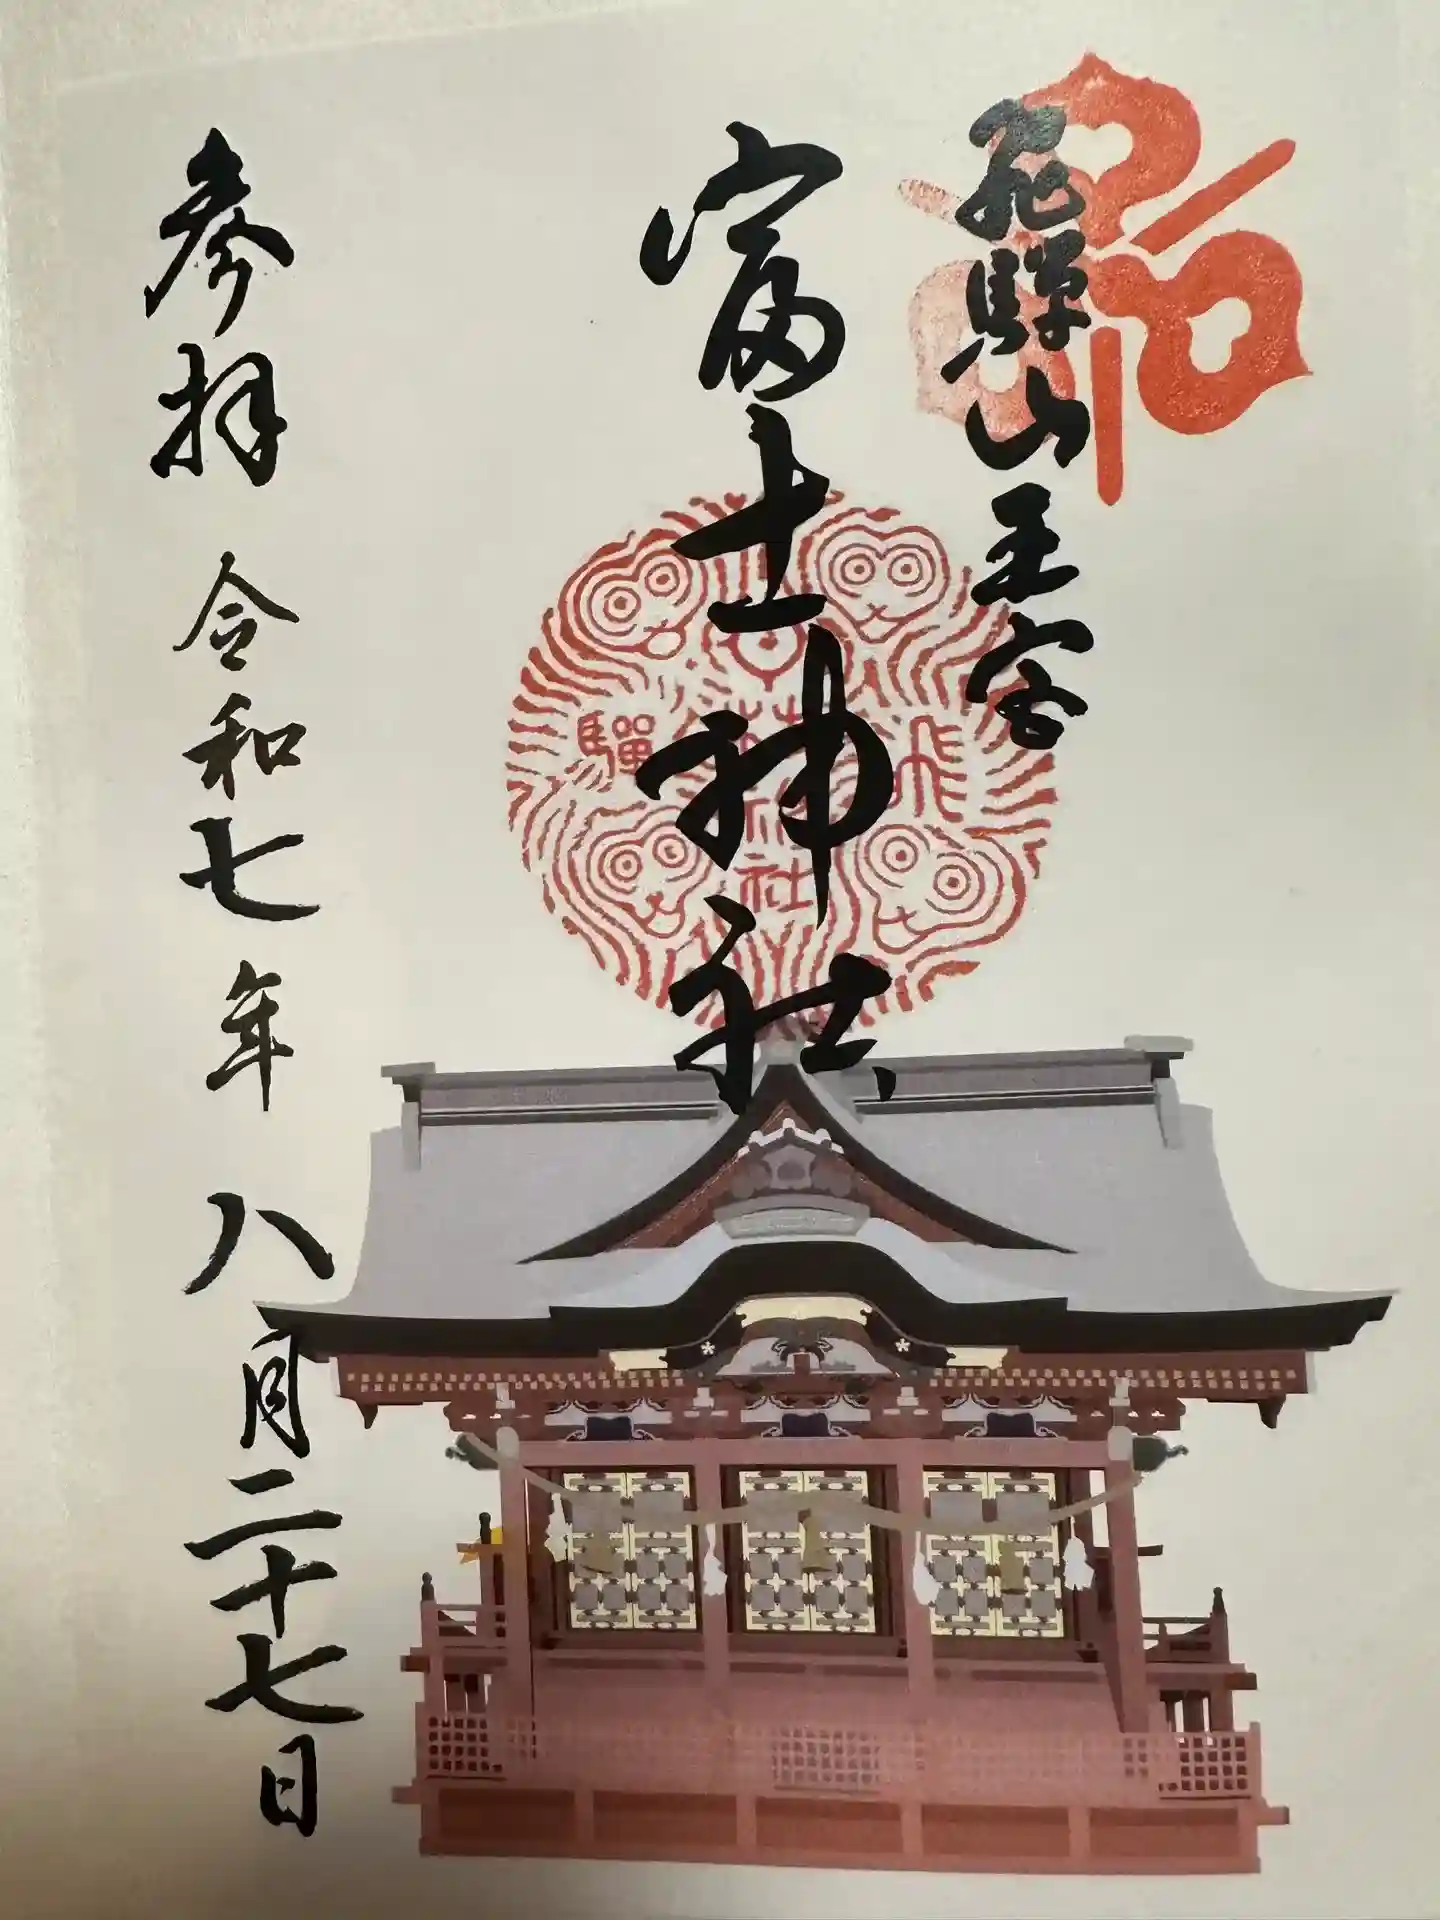 飛騨山王宮
富士神社
飛
驒
社
参拝 令和七年 八月二十七日